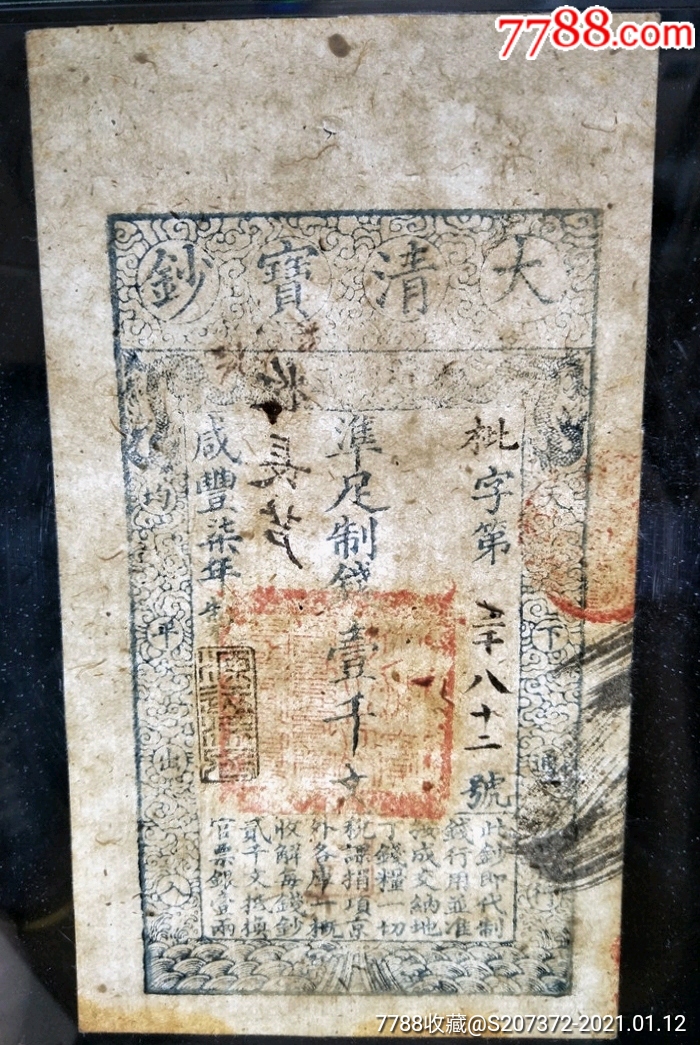 7788.com
大清寶鈔
枇字第
八十二
號
準足制錢壹千文
咸豐柒年
天下通行
均平出入
此鈔即代制
錢行用並准
按成交納地
丁錢糧一切
稅課捐項京
外各庫一概
收解每錢鈔
貳千文抵換
官票銀壹兩
7788收藏@S207372-2021.01.12